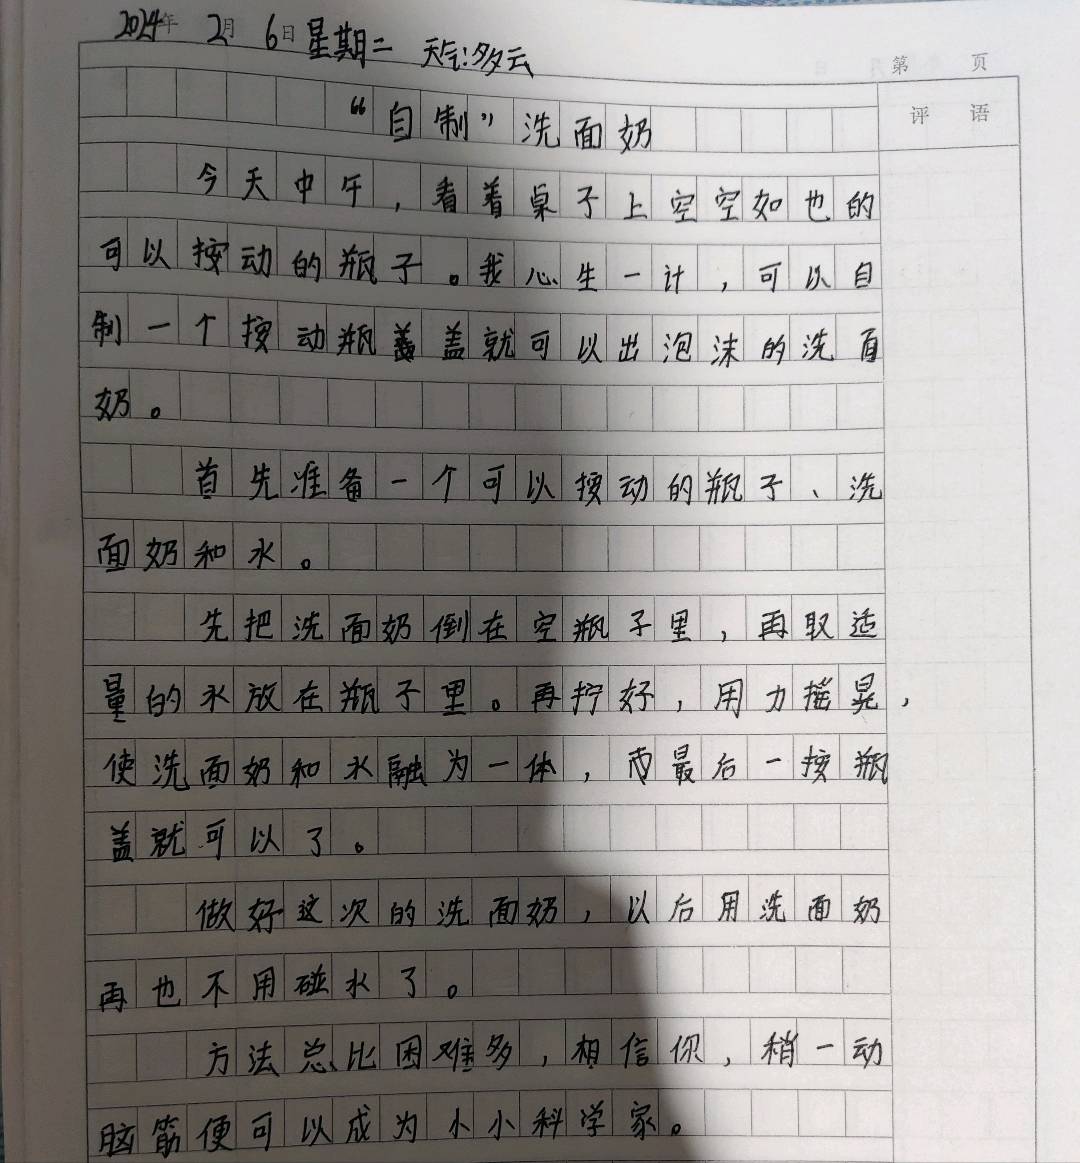 2024年 2月 6日 星期二 天气:多云
第 页
评 语
“自制”洗面奶
今天中午，看着桌子上空空如也的
可以按动的瓶子。我心生一计，可以自
制一个按动瓶盖就可以出泡沫的洗面
奶。
首先准备一个可以按动的瓶子、洗
面奶和水。
先把洗面奶倒在空瓶子里，再取适
量的水放在瓶子里。再拧好，用力摇晃，
使洗面奶和水融为一体，最后一按瓶
盖就可以了。
做好这次的洗面奶，以后用洗面奶
再也不用碰水了。
方法总比困难多，相信你，稍一动
脑筋便可以成为小小科学家。